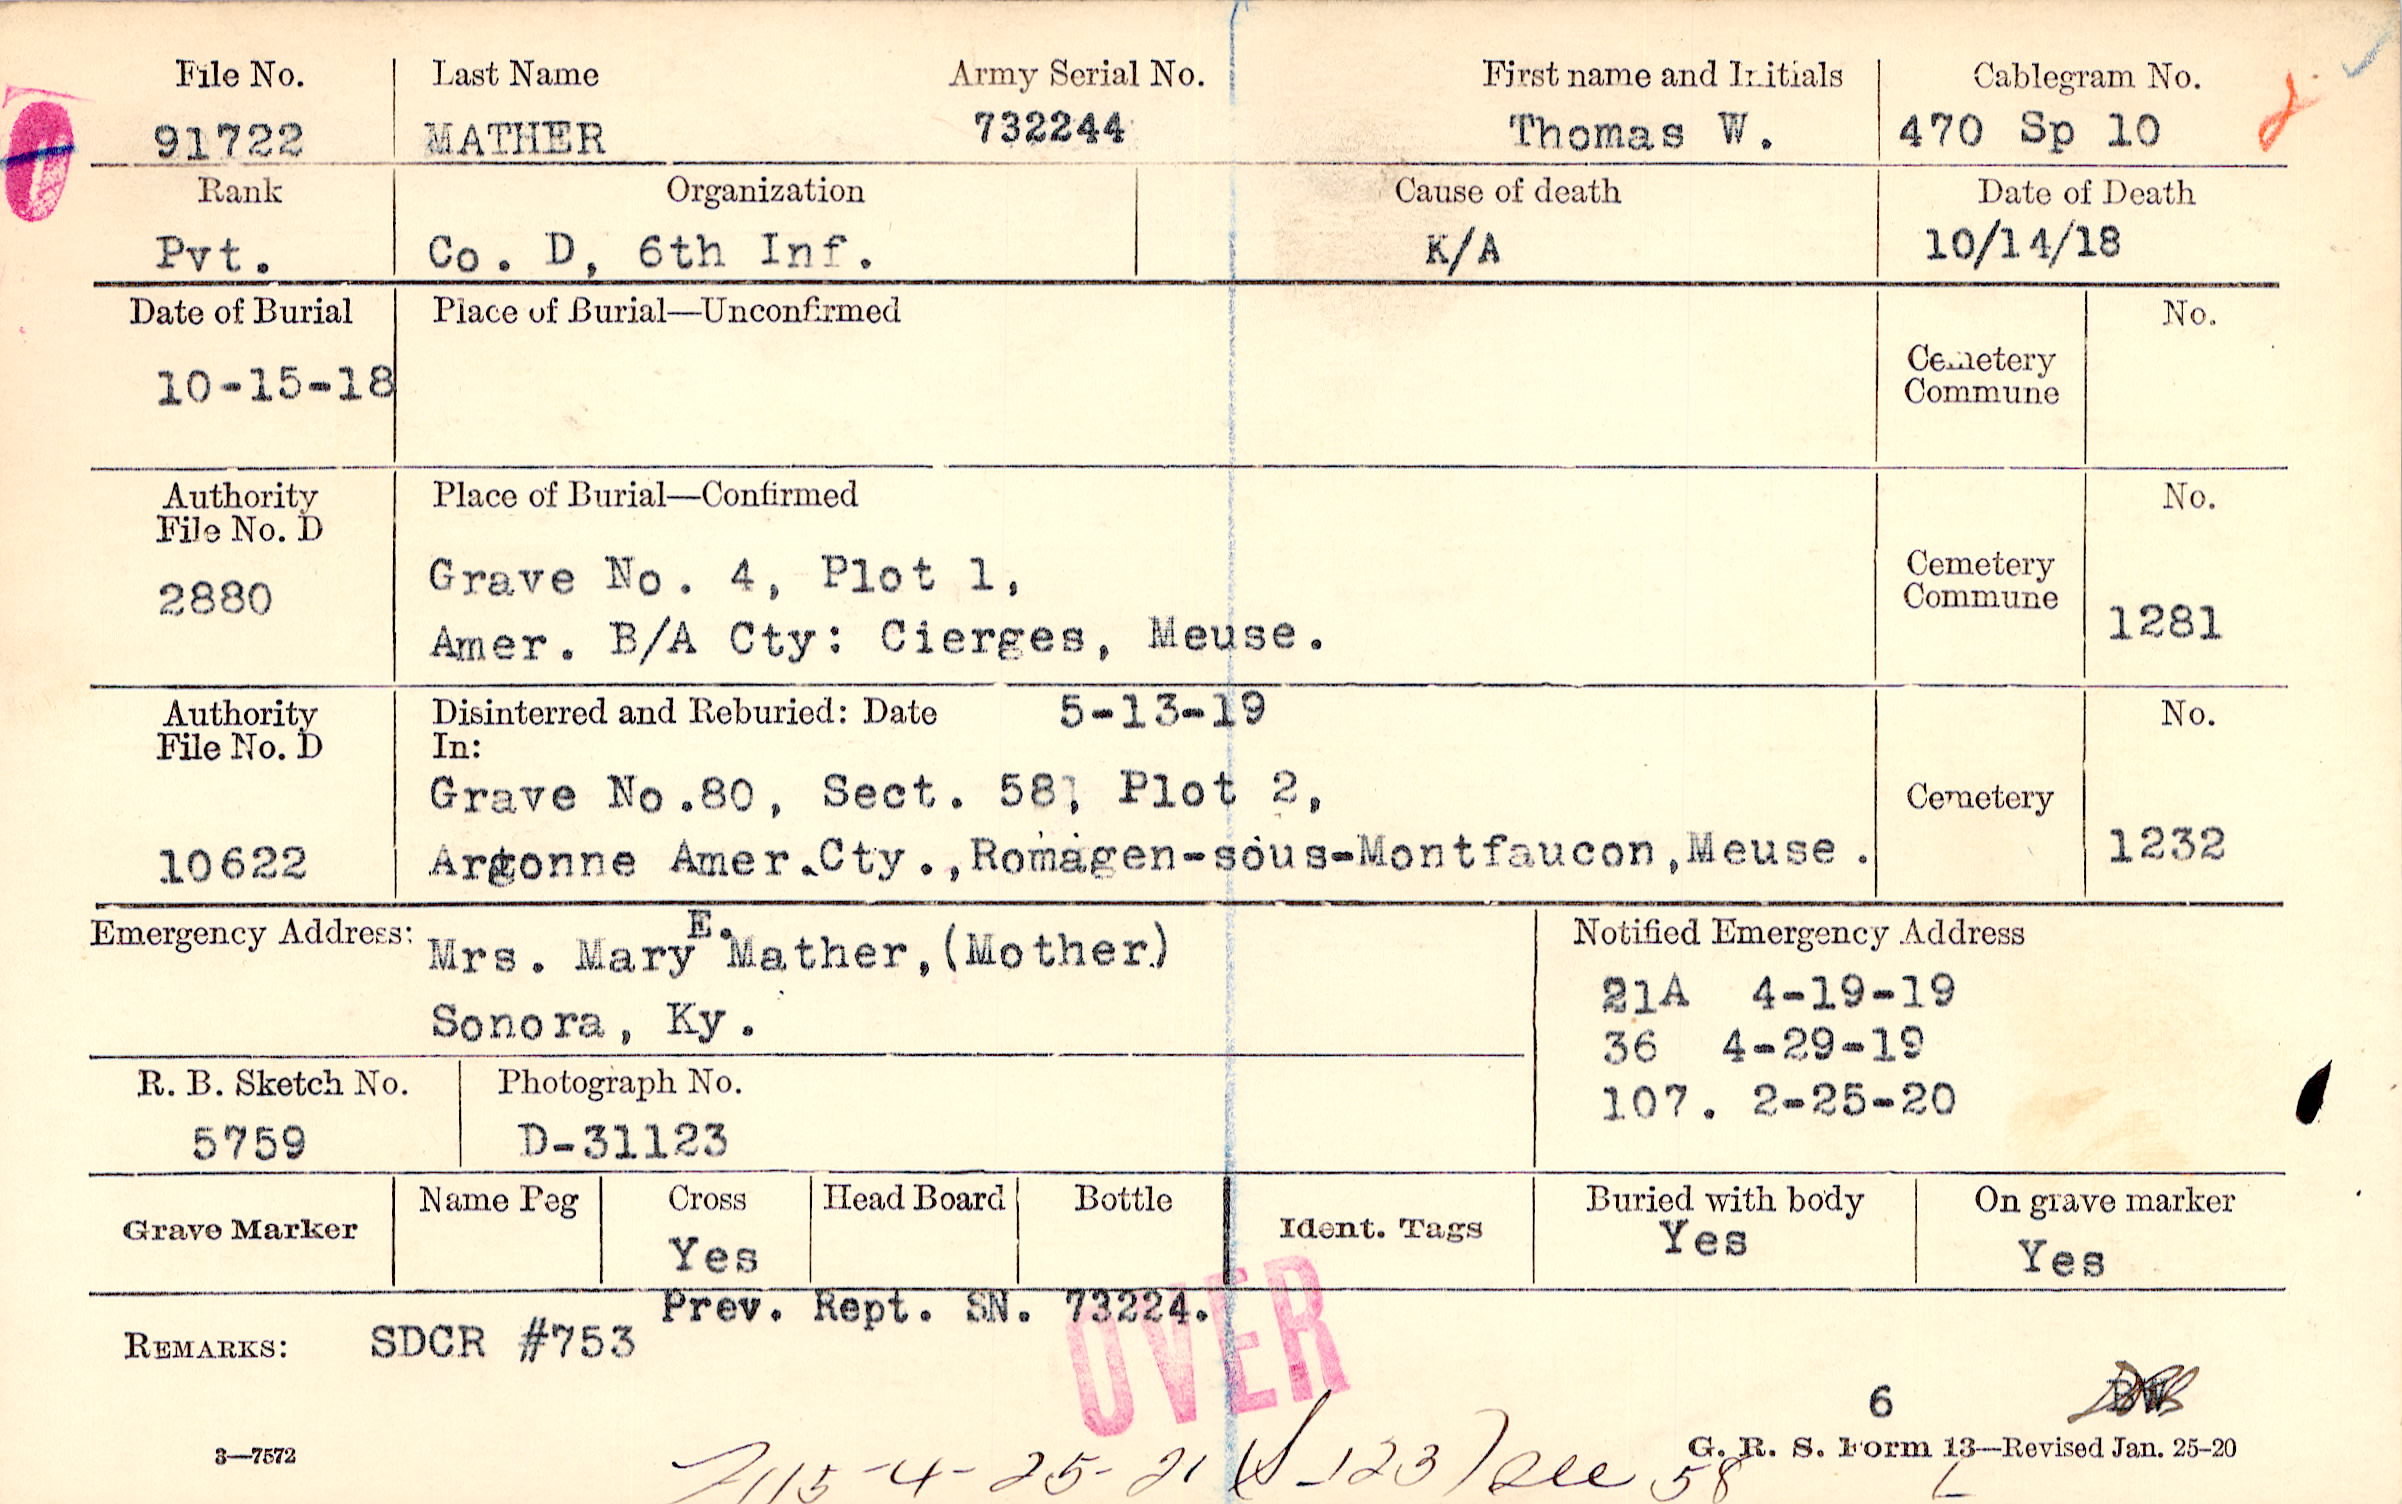 File No. Last Name Army Serial No. First name and Initials Cablegram No.
91722 MATHER 732244 Thomas W. 470 Sp 10
Rank Organization Cause of death Date of Death
Pvt. Co. D, 6th Inf. K/A 10/14/18
Date of Burial Place of Burial—Unconfirmed No.
10-15-18 Cemetery
Commune
Authority Place of Burial—Confirmed No.
File No. D
2880 Grave No. 4, Plot 1, Cemetery
Commune
Amer. B/A Cty: Cierges, Meuse. 1281
Authority Disinterred and Reburied: Date 5-13-19 No.
File No. D In:
Grave No.80, Sect. 58, Plot 2, Cemetery
10622 Argonne Amer.Cty.,Romagen-sous-Montfaucon,Meuse. 1232
Emergency Address: Mrs. Mary E. Mather,(Mother) Notified Emergency Address
Sonora, Ky. 21A 4-19-19
36 4-29-19
R. B. Sketch No. Photograph No. 107. 2-25-20
5759 D-31123
Grave Marker Name Peg Cross Head Board Bottle Ident. Tags Buried with body On grave marker
Yes Yes Yes
Prev. Rept. SN. 73224.
REMARKS: SDCR #753
OVER
6
3—7572 G. R. S. Form 13—Revised Jan. 25-20
-4-25-21 -123) 58